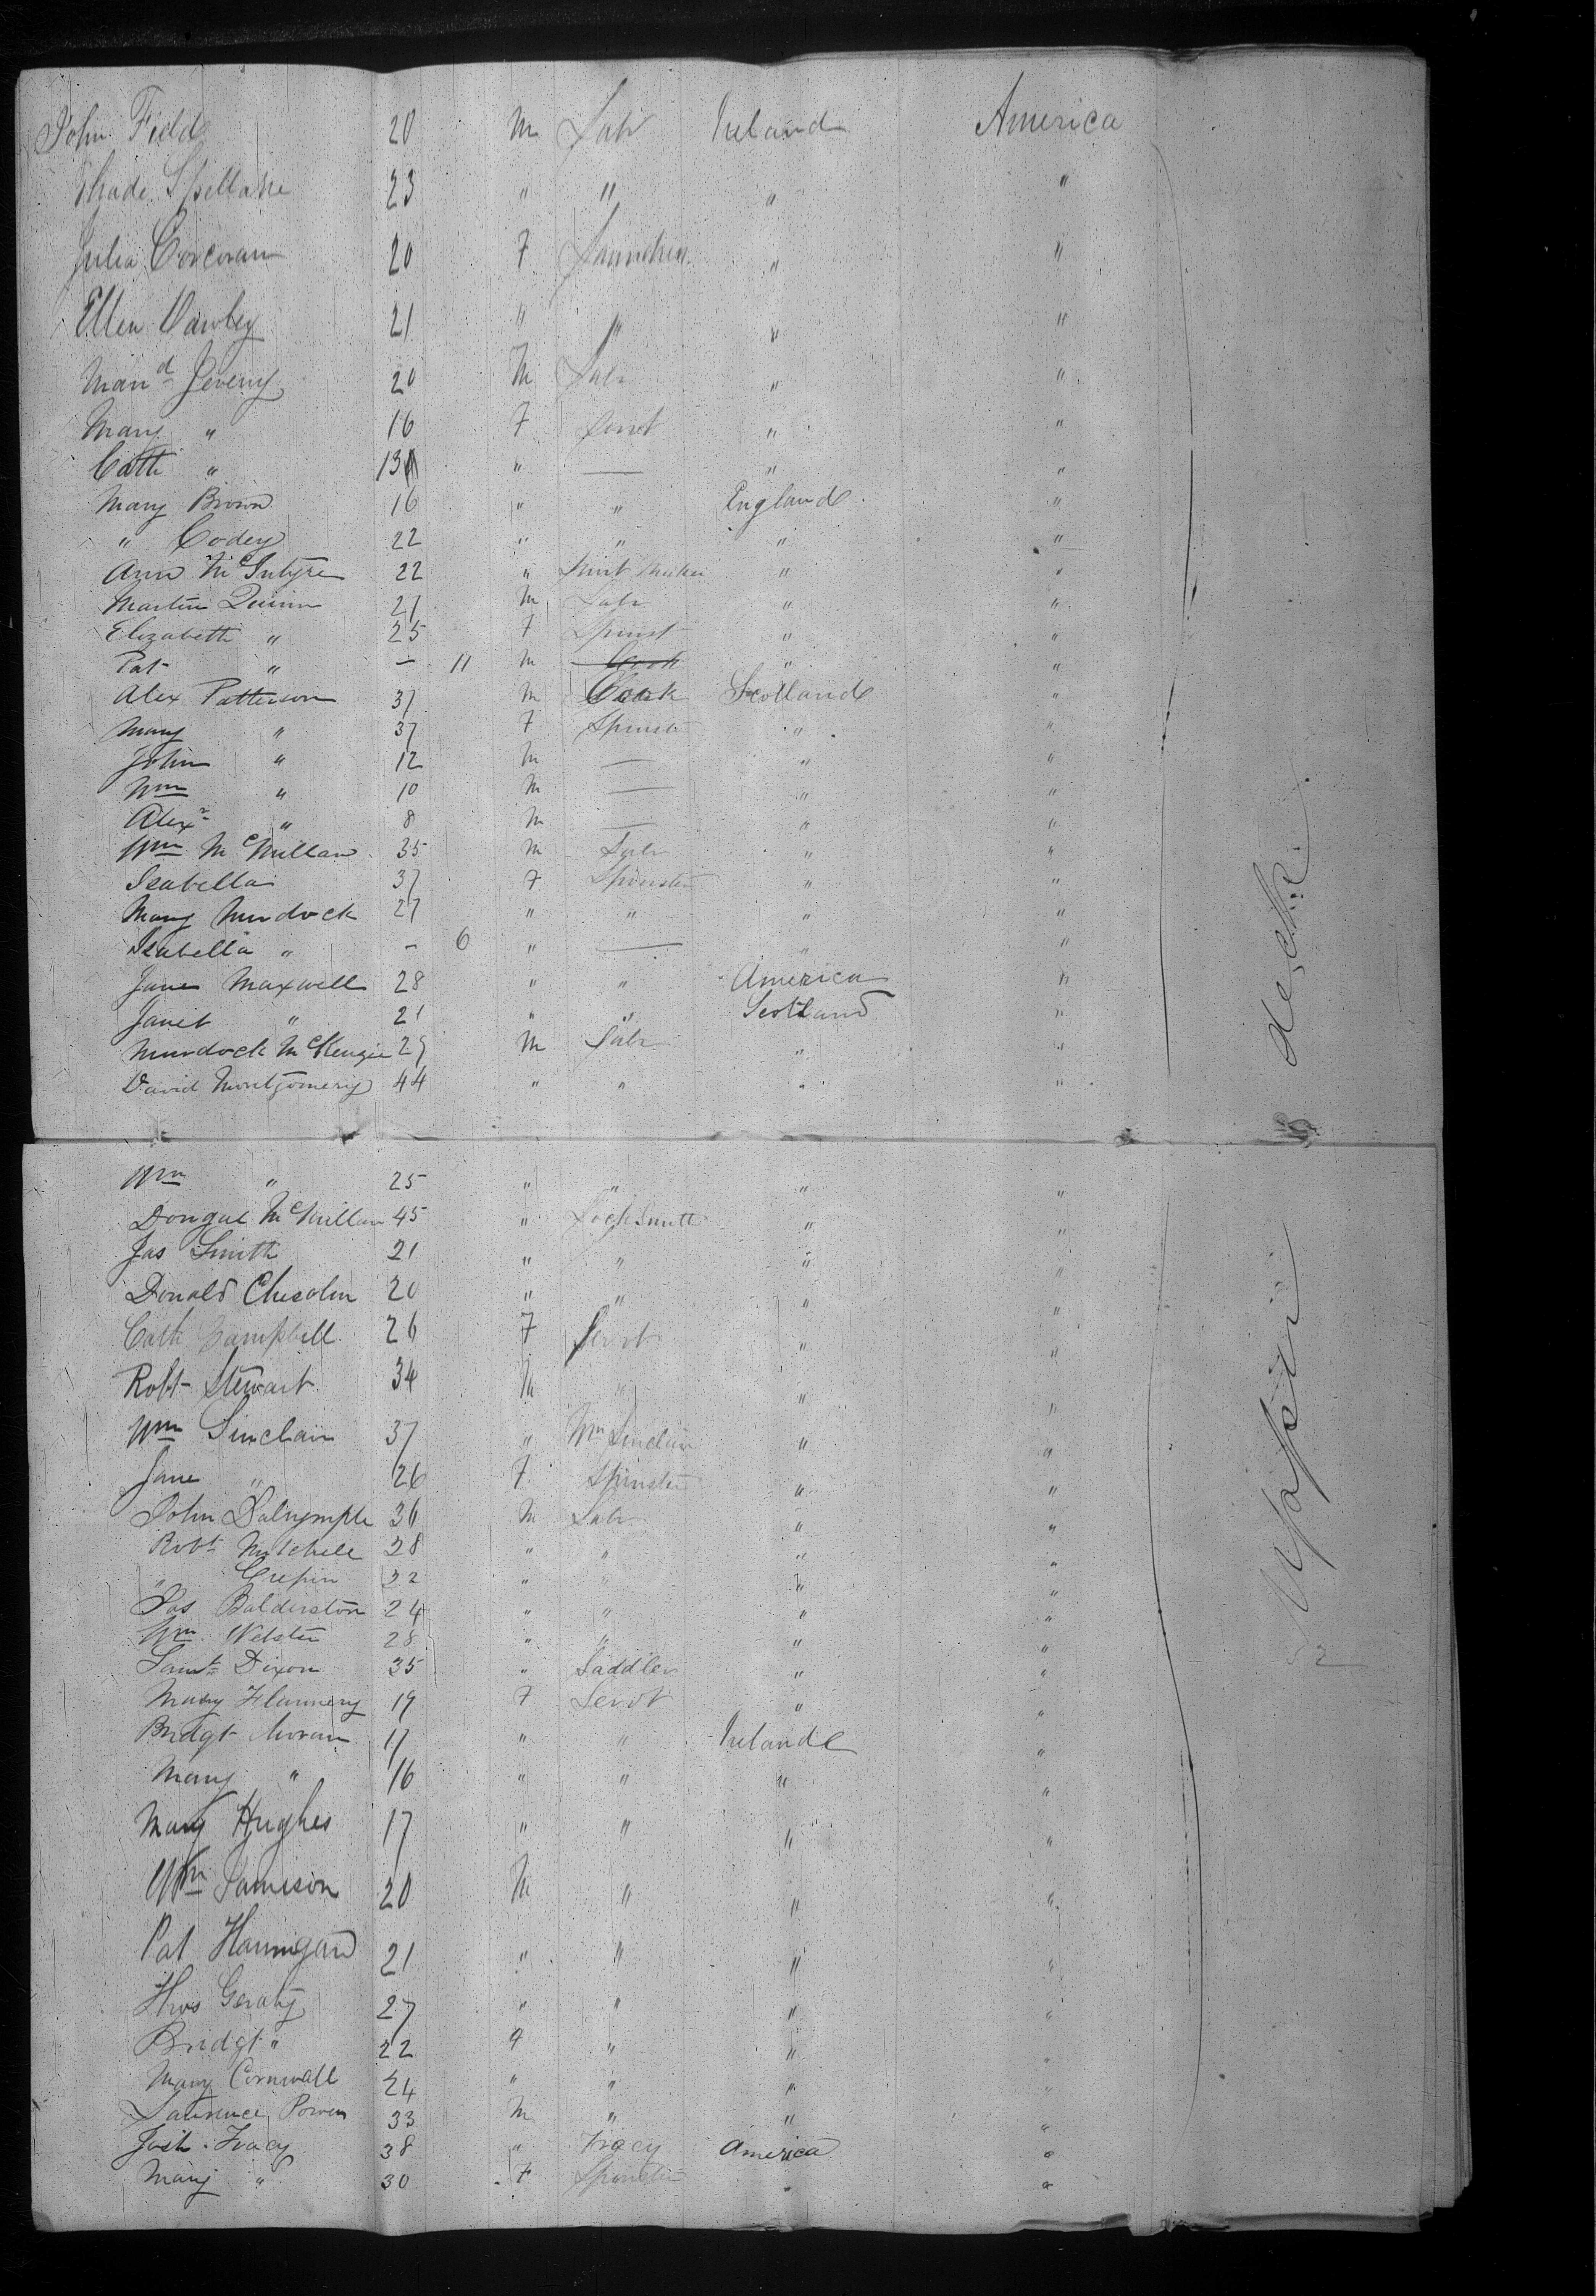 John Field 20 M Labr Ireland America
Thade Spellane 23 " " " "
Julia Corcoran 20 F Laundress " "
Ellen Dawley 21 " " " "
20 M Labr " "
Mary " 16 F Servt " "
Cath " 13 " — " "
Mary Brown 16 " " England "
" Codey 22 " " " "
Ann McIntyre 22 " " "
Martin Quinn 27 M Labr " "
Elizabeth " 25 F Spinst " "
Pat " – 11 M Cook " "
Alex Patterson 37 M Cook Scotland "
Mary " 37 F Spinstr " "
John " 12 M — " "
Wm " 10 M — " "
Alexr " 8 M — " "
Wm McMillan 35 M Labr " "
Isabella 37 F Spinster " "
Mary Murdock 27 " " " "
Isabella " – 6 " — " "
Jane Maxwell 28 " " America "
Janet " 21 " " Scotland "
Murdock McKenzie 29 M Labr " "
David Montgomery 44 " " " "
Wm " 25 " " " "
Dougal McMillan 45 " Lock Smith " "
Jas Smith 21 " " " "
Donald Chisolm 20 " " " "
Cath Campbell 26 F Servt " "
Robt Stewart 34 M " " "
Wm Sinclair 37 " Wm Sinclair " "
Jane " 26 F Spinster " "
John Dalrymple 36 M Labr " "
Robt Mitchell 28 " " " "
" 32 " " " "
Jas Balderston 24 " " " "
Wm Webster 28 " " " "
Saml Dixon 35 " Saddler " "
Mary Flannery 19 F Servt " "
Bridgt Moran 17 " " Ireland "
Mary " 16 " " " "
Mary Hughes 17 " " " "
Wm Jamison 20 M " " "
Pat Hannigan 21 " " " "
Thos Geraty 27 " " " "
Bridgt " 22 F " " "
Mary Cornwall 24 " " " "
Laurence Power 33 M " " "
Josh Tracy 38 " Tracy America "
Mary " 30 F Spinster " "
deck
Upper
52